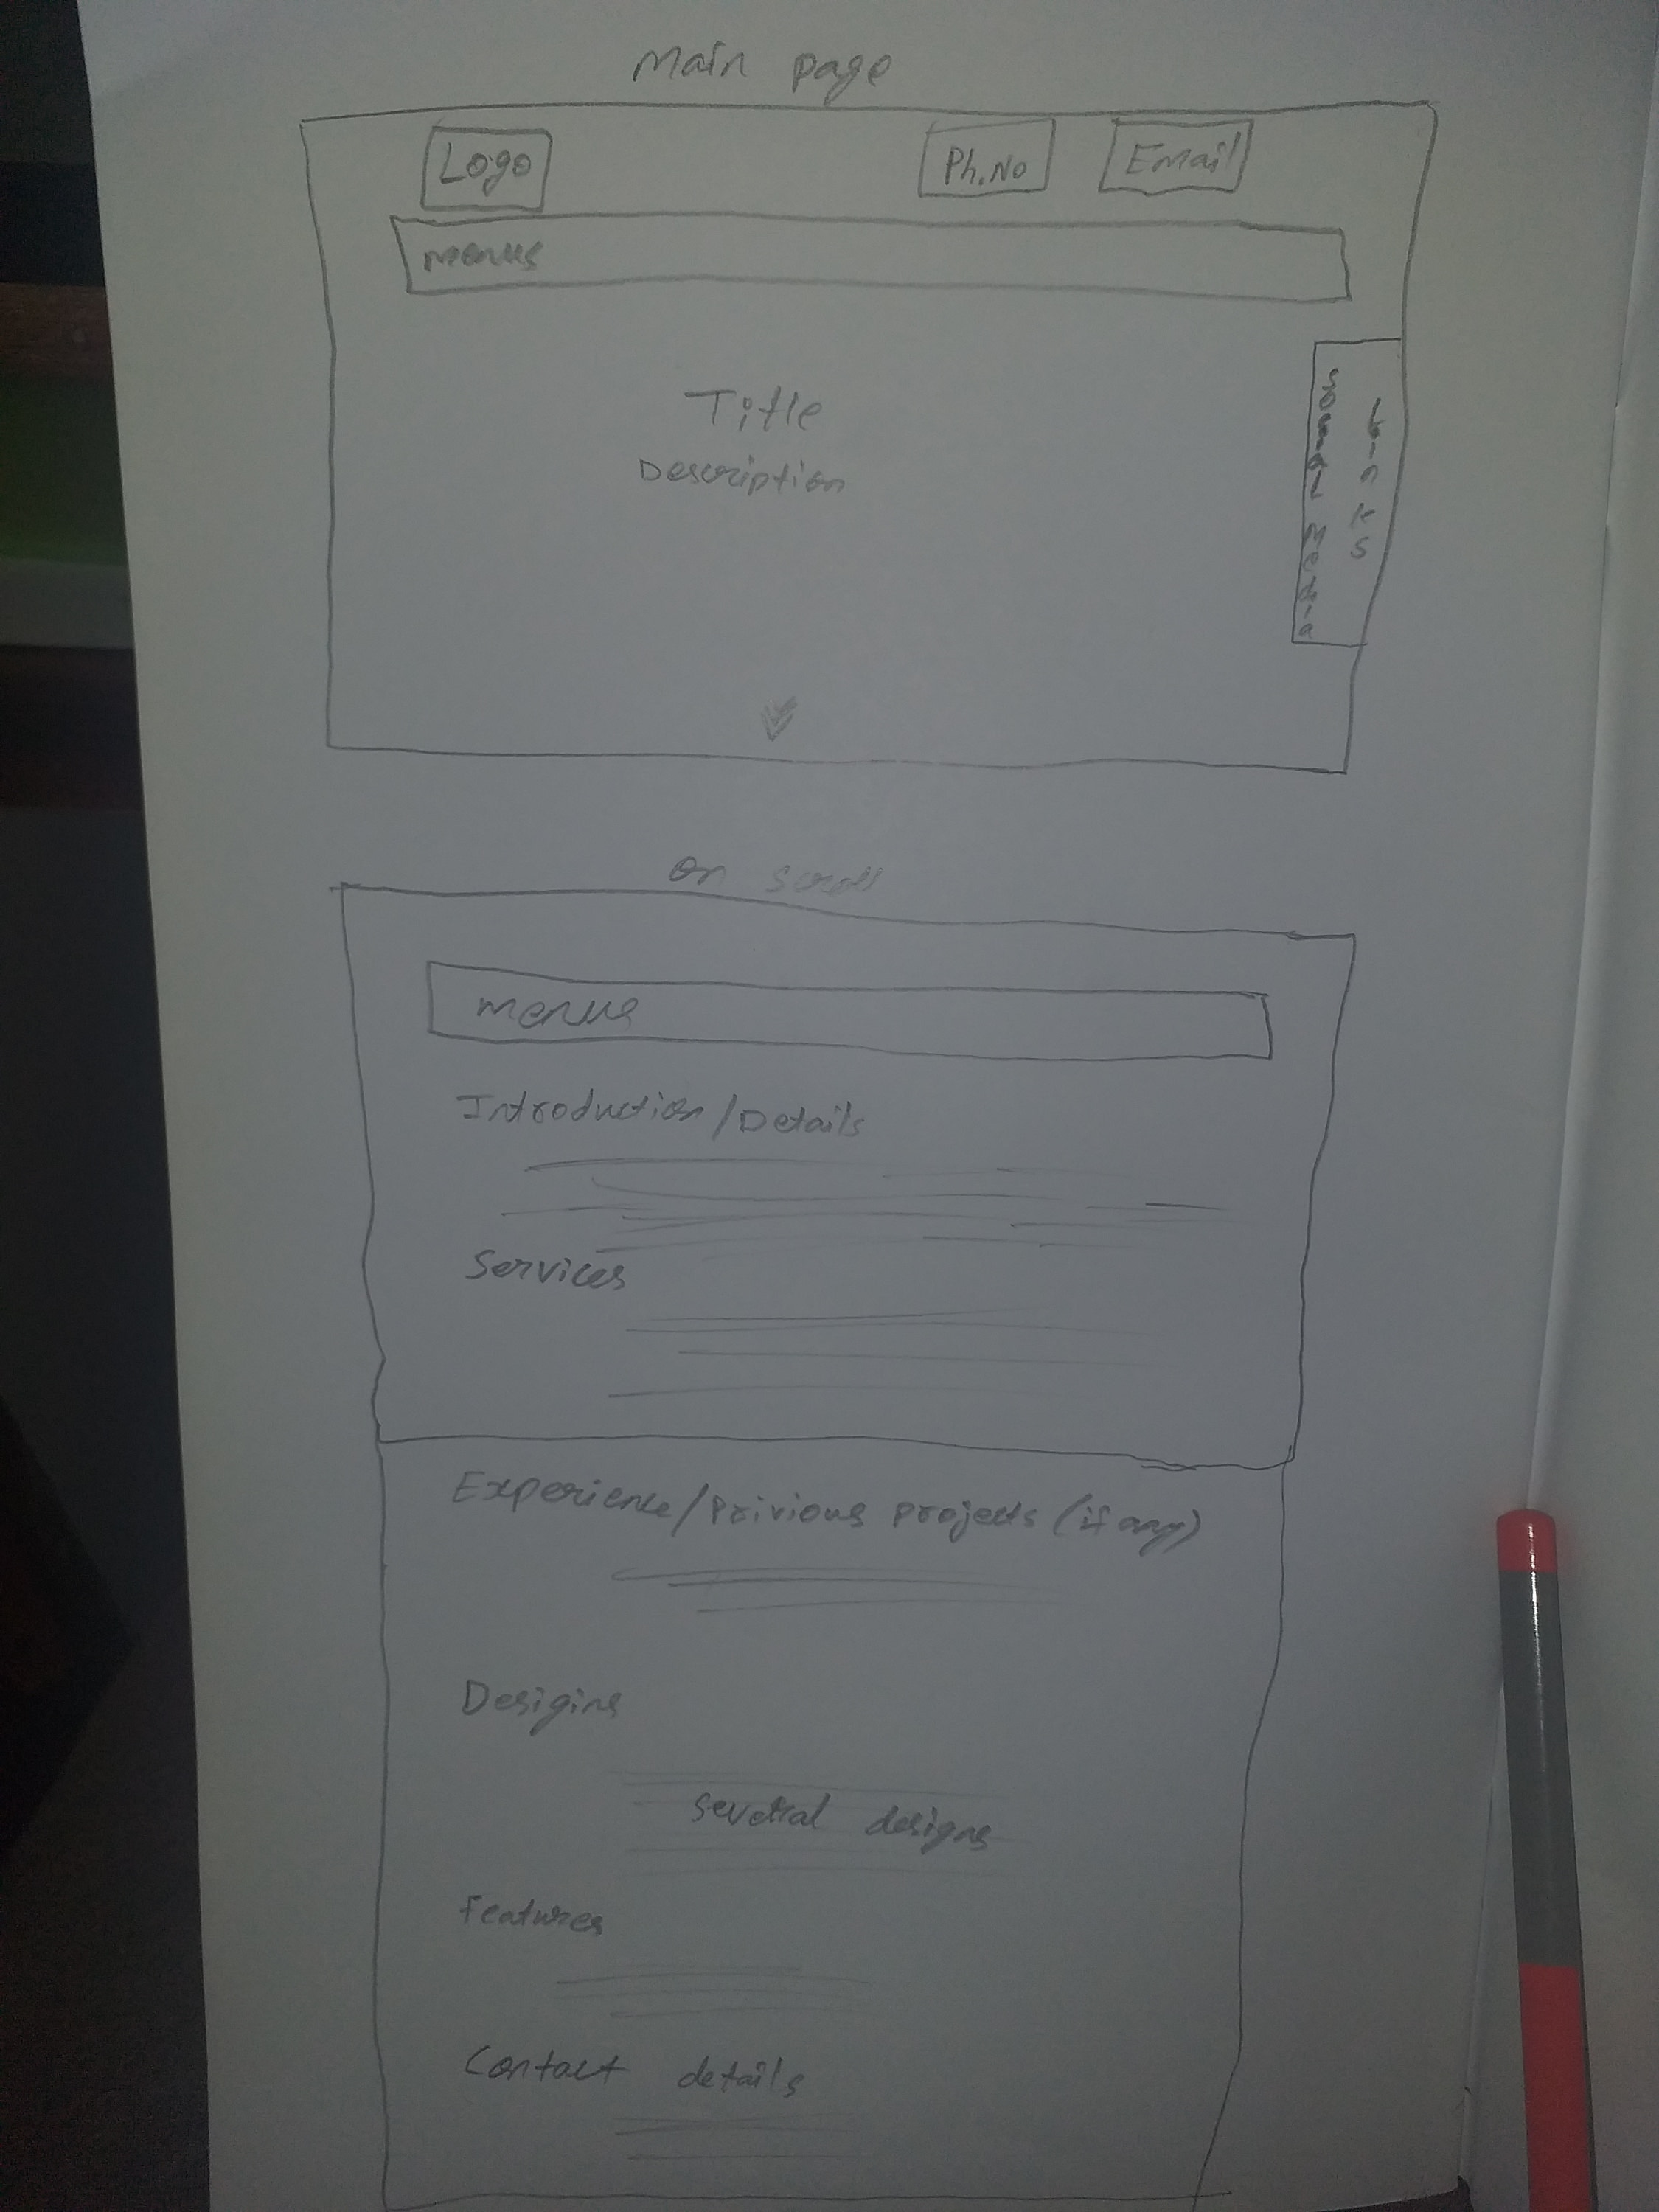 Main page
Logo
Ph.No
Email
menus
Title
Description
Social Media
Links
on scroll
menus
Introduction/Details
Services
Experience/Privious projects (if any)
Desigins
several designs
Features
Contact details